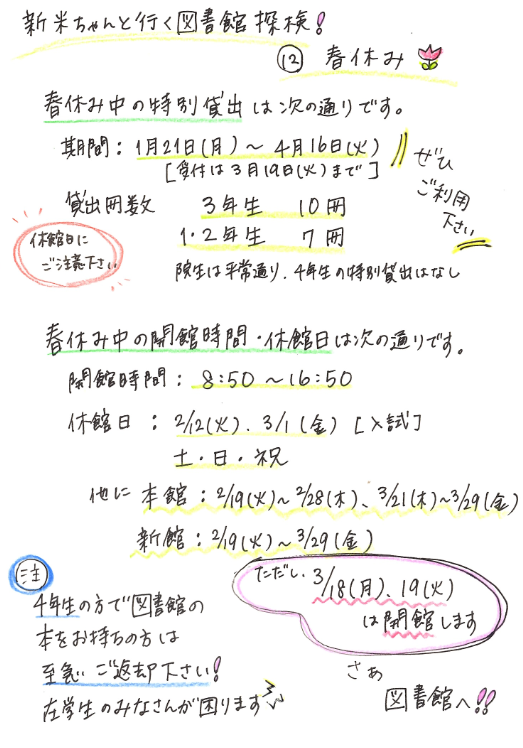 新米ちゃんと行く図書館探検!
⑫ 春休み
春休み中の特別貸出は次の通りです。
期間：1月21日(月)～4月16日(火)
[受付は3月19日(火)まで]
ぜひ
ご利用
下さい
貸出冊数 3年生 10冊
1・2年生 7冊
休館日に
ご注意下さい
院生は平常通り、4年生の特別貸出はなし
春休み中の開館時間・休館日は次の通りです。
開館時間：8:50～16:50
休館日：2/12(火)、3/1(金)[入試]
土・日・祝
他に 本館：2/19(火)～2/28(木)、3/21(木)～3/29(金)
新館：2/19(火)～3/29(金)
ただし、3/18(月)、19(火)
は開館します
注
4年生の方で図書館の
本をお持ちの方は
至急ご返却下さい!
在学生のみなさんが困ります
さぁ
図書館へ!!